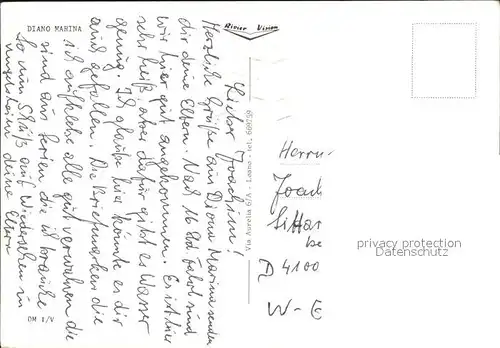 DIANO MARINA
River Vision
Lieber Joachim!
Herzliche Grüße aus Diano Marina senden
dir deine Eltern. Nach 16 Std Fahrt sind
wir hier gut angekommen. Es ist hier
sehr heiß aber dafür gibt es Wasser
genug. Ich glaube hier könnte es dir
auch gefallen. Die Briefmarken die
ich aufklebe alle gut verwahren die
sind aus Serien die ich brauche
So nun Schluß auf Wiedersehen in
deine Eltern
DM 1/V
Via Aurelia 6/A - Loano - tel. 669259
Herrn
Joach
Sittar
be
D 4100
W-E
privacy protection
Datenschutz